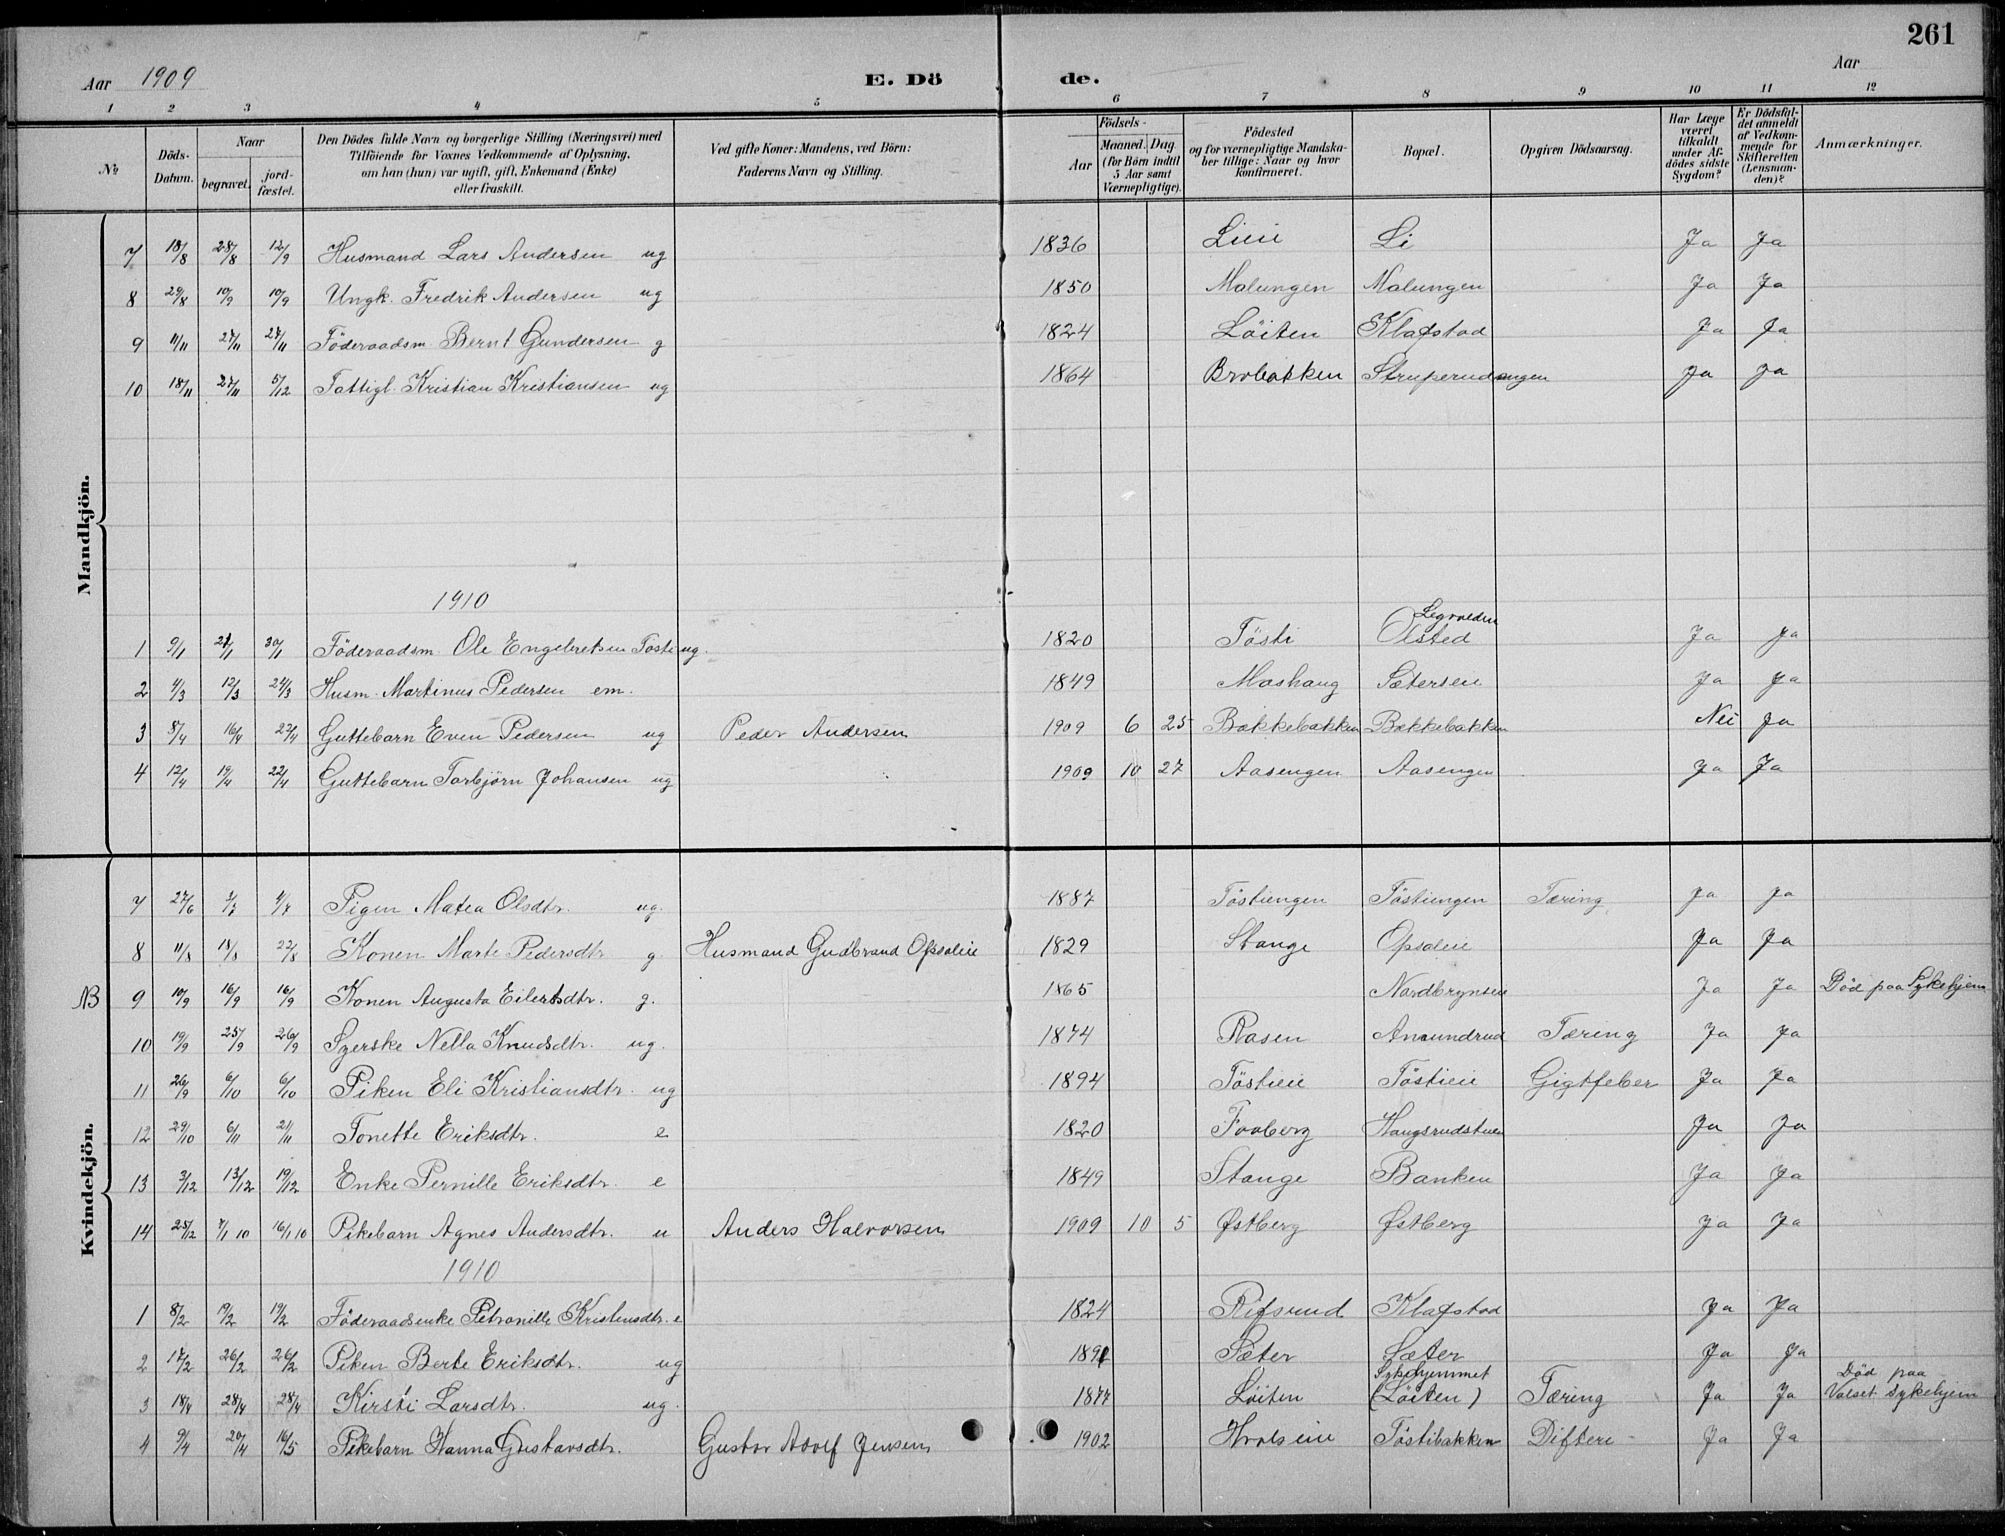 261
Aar 1909 E. Dö de. Aar
1 2 3 4 5 6 7 8 9 10 11 12
No Döds-Datum. Naar begravet. jord-fæstet. Den Dödes fulde Navn og borgerlige Stilling (Næringsvei) med Tilföiende for Voxnes Vedkommende af Oplysning, om han (hun) var ugift, gift, Enkemand (Enke) eller fraskilt. Ved gifte Koner: Mandens, ved Börn: Faderens Navn og Stilling. Födsels- Aar Maaned. Dag (for Börn indtil 5 Aar samt Værnepligtige). Födested og for værnepligtige Mandskaber tillige: Naar og hvor konfirmeret. Bopæl. Opgiven Dödsaarsag. Har Læge været tilkaldt under Afdödes sidste Sygdom? Er Dödsfaldet anmeldt af Vedkommende for Skifteretten (Lensmanden)? Anmærkninger.
Mandkjön.
7 18/8 28/8 12/9 Husmand Lars Andersen ug 1836 Liei Li Ja Ja
8 29/8 10/9 10/9 Ungk. Fredrik Andersen ug 1850 Malungen Malungen Ja Ja
9 11/11 27/11 27/11 Föderaadsm Bernt Gundersen g 1824 Löiten Klafstad Ja Ja
10 18/11 27/11 5/12 Fattigl. Kristian Kristiansen ug 1864 Brobakken Struperudengen Ja Ja
1910
Legvolden
1 9/1 21/1 30/1 Föderaadsm Ole Engebretsen Tösti ug. 1820 Tösti Olsted Ja Ja
2 4/3 12/3 24/3 Husm. Martinus Pedersen em. 1849 Moshaug Sæterseie Ja Ja
3 8/4 16/4 22/4 Guttebarn Even Pedersen ug Peder Andersen 1909 6 25 Bakkebakken Bakkebakken Nei Ja
4 12/4 19/4 22/4 Guttebarn Torbjörn Johansen ug 1909 10 27 Aasengen Aasengen Ja Ja
Kvindekjön.
7 27/6 3/7 4/7 Pigen Matea Olsdtr. ug. 1887 Töstiengen Töstiengen Tæring Ja Ja
8 11/8 18/8 22/8 Konen Marte Pedersdtr g. Husmand Gudbrand Opsaleie 1829 Stange Opsaleie Ja Ja
NB 9 10/9 16/9 16/9 Konen Augusta Eilertsdtr. g. 1865 Nordbrynseie Ja Ja Död paa Sykehjem
10 19/9 25/9 26/9 Syerske Nella Knudsdtr. ug. 1874 Rasen Amundrud Tæring Ja Ja
11 26/9 6/10 6/10 Piken Eli Kristiansdtr. ug 1894 Töstieie Töstieie Gigtfeber Ja Ja
12 29/10 6/11 21/11 Tonette Eriksdtr. e 1820 Faaberg Haugsrudstuen Ja Ja
13 3/12 13/12 19/12 Enke Pernille Eriksdtr. e 1849 Stange Banken Ja Ja
14 25/12 7/1 10 16/1 10 Pikebarn Agnes Andersdtr. u Anders Halvorsen 1909 10 5 Østberg Østberg Ja Ja
1910
1 8/2 19/2 19/2 Föderaadsenke Petronille Kristensdtr. e 1824 Rifsrud Klafstad Ja Ja
2 17/2 26/2 26/2 Piken Berte Eriksdtr. ug 1891 Sæter Sæter Ja Ja
Sykehjemmet Död paa
3 18/4 28/4 28/4 Kirsti Larsdtr. ug. 1877 Löiten (Löiten) Tæring Ja Ja Valset sykehjem
4 9/4 20/4 16/5 Pikebarn Hanna Gustavsdtr. Gustav Adolf Jensen 1902 Hvalseie Töstibakken Difteri Ja Ja